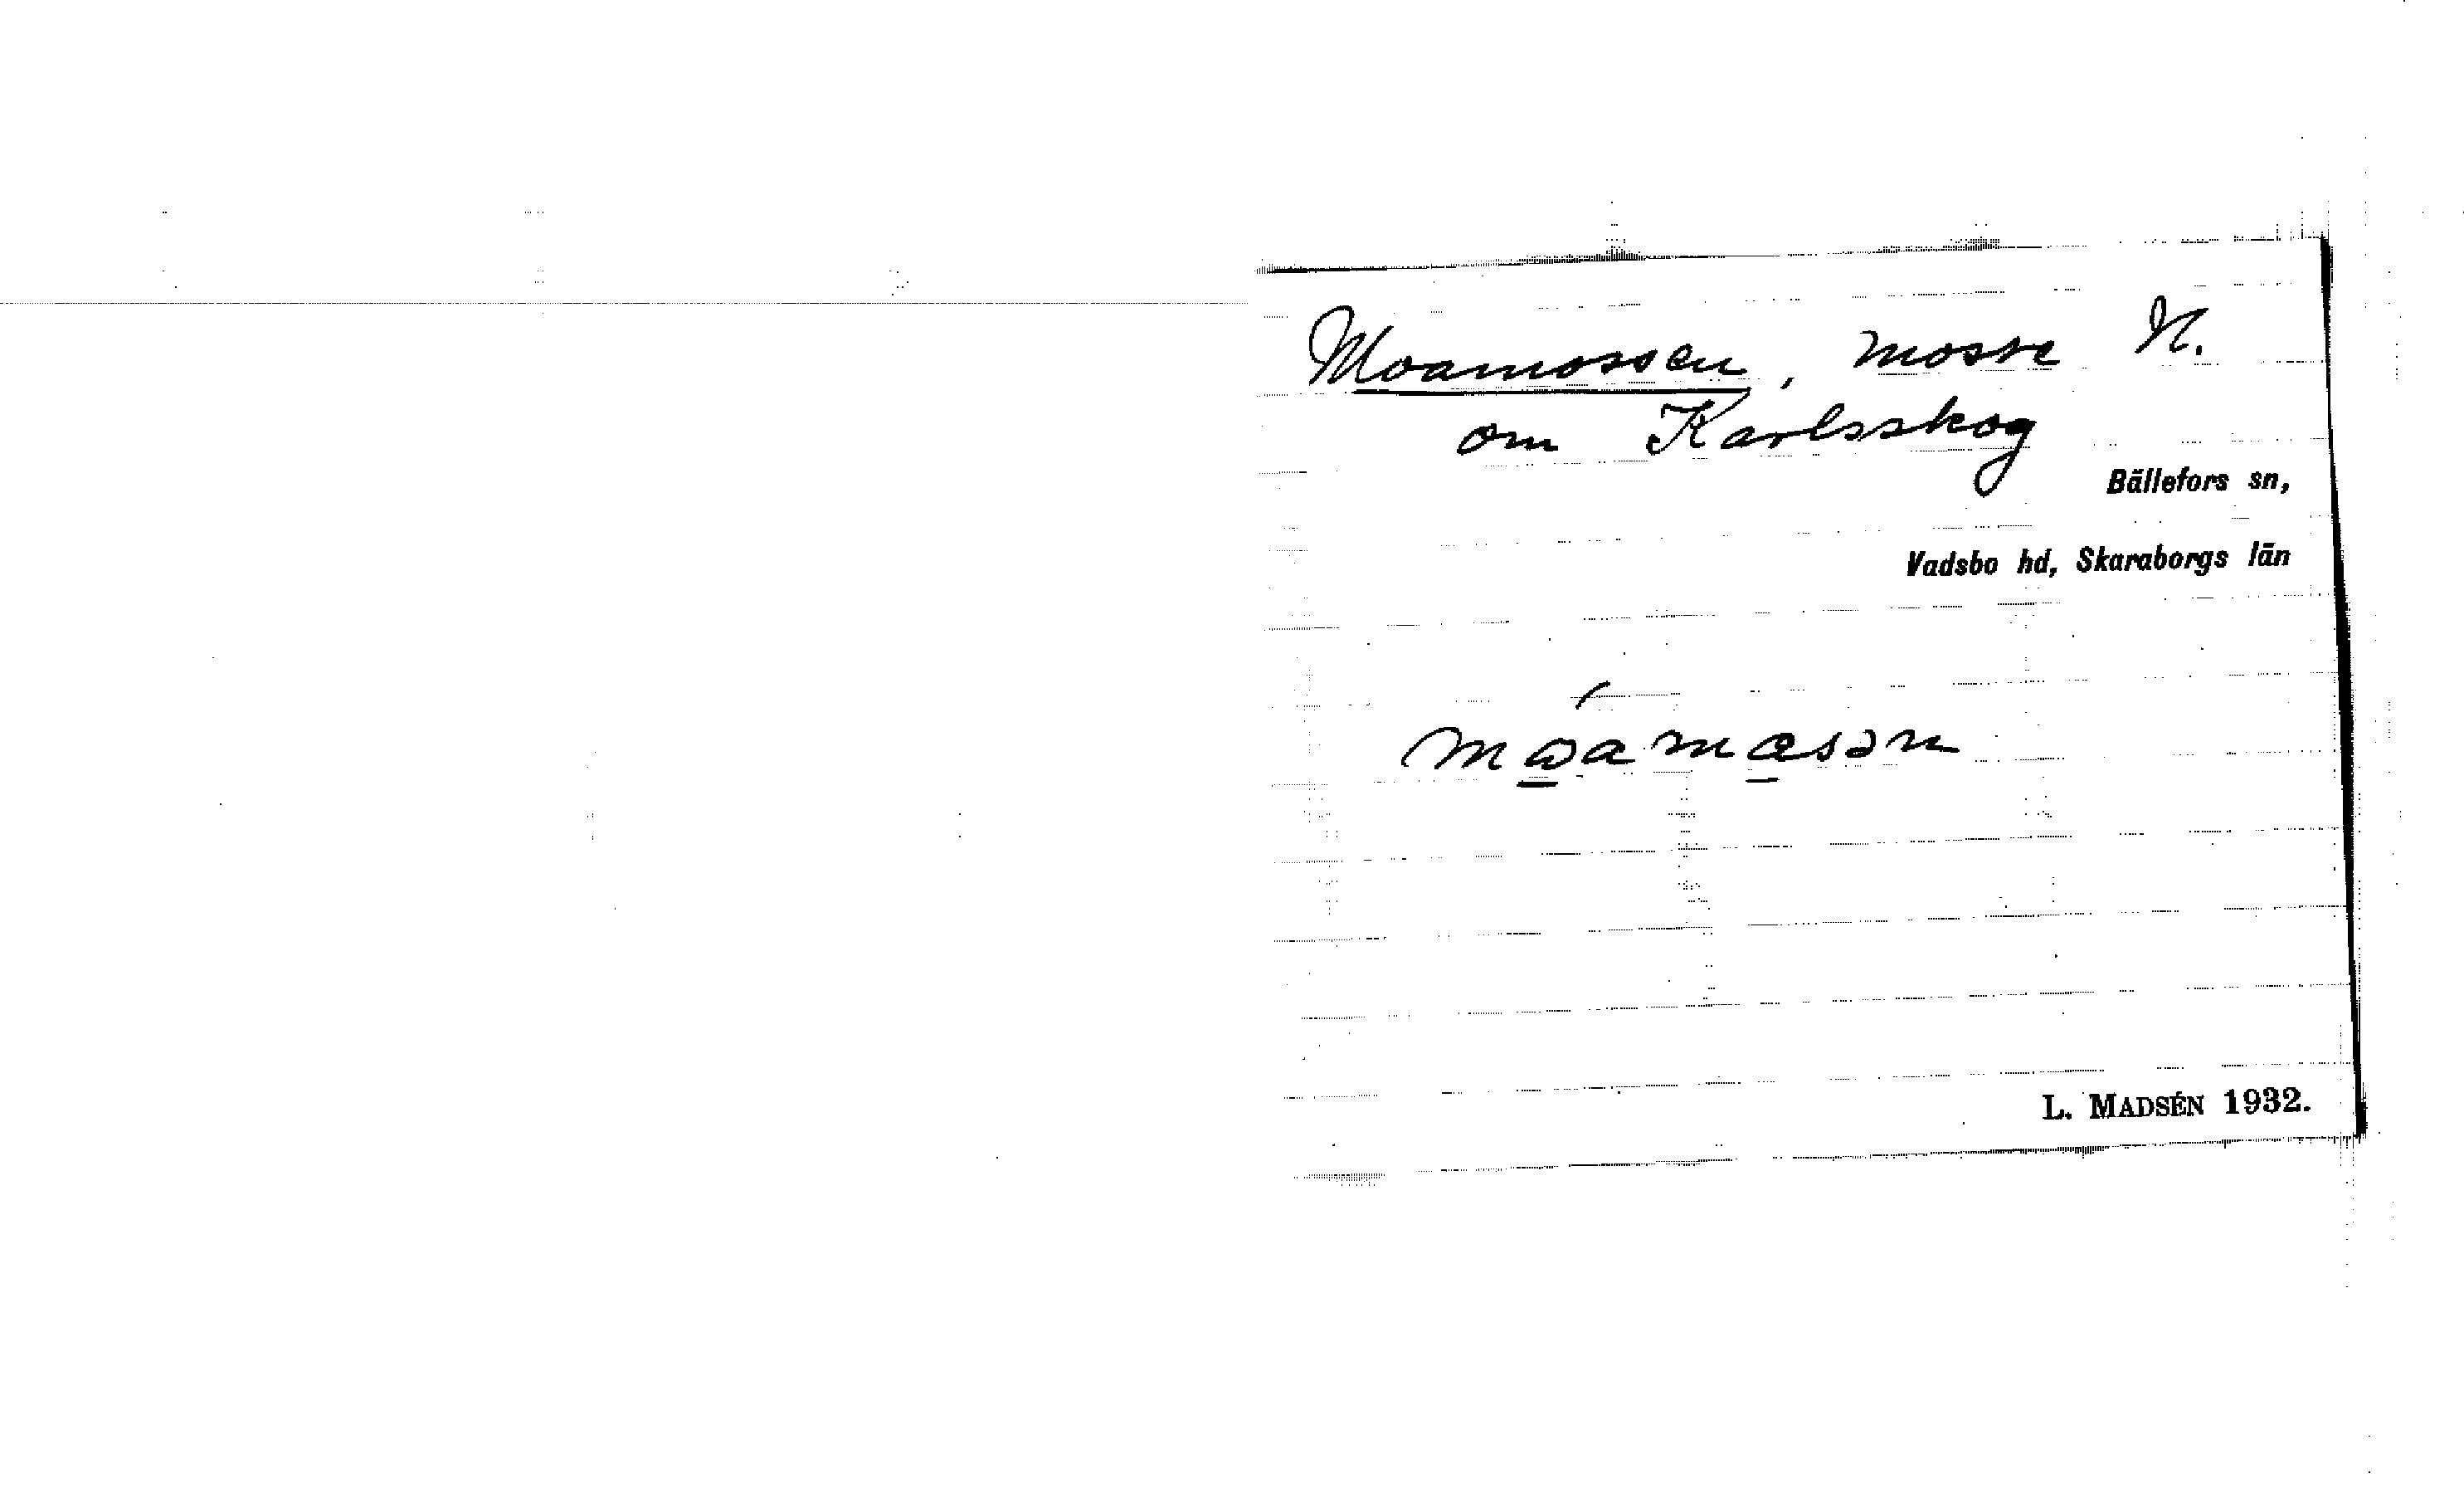 Moamossen, mosse N.
om Karlsskog
Bällefors sn,
Vadsbo hd, Skaraborgs län
L. MADSÉN 1932.